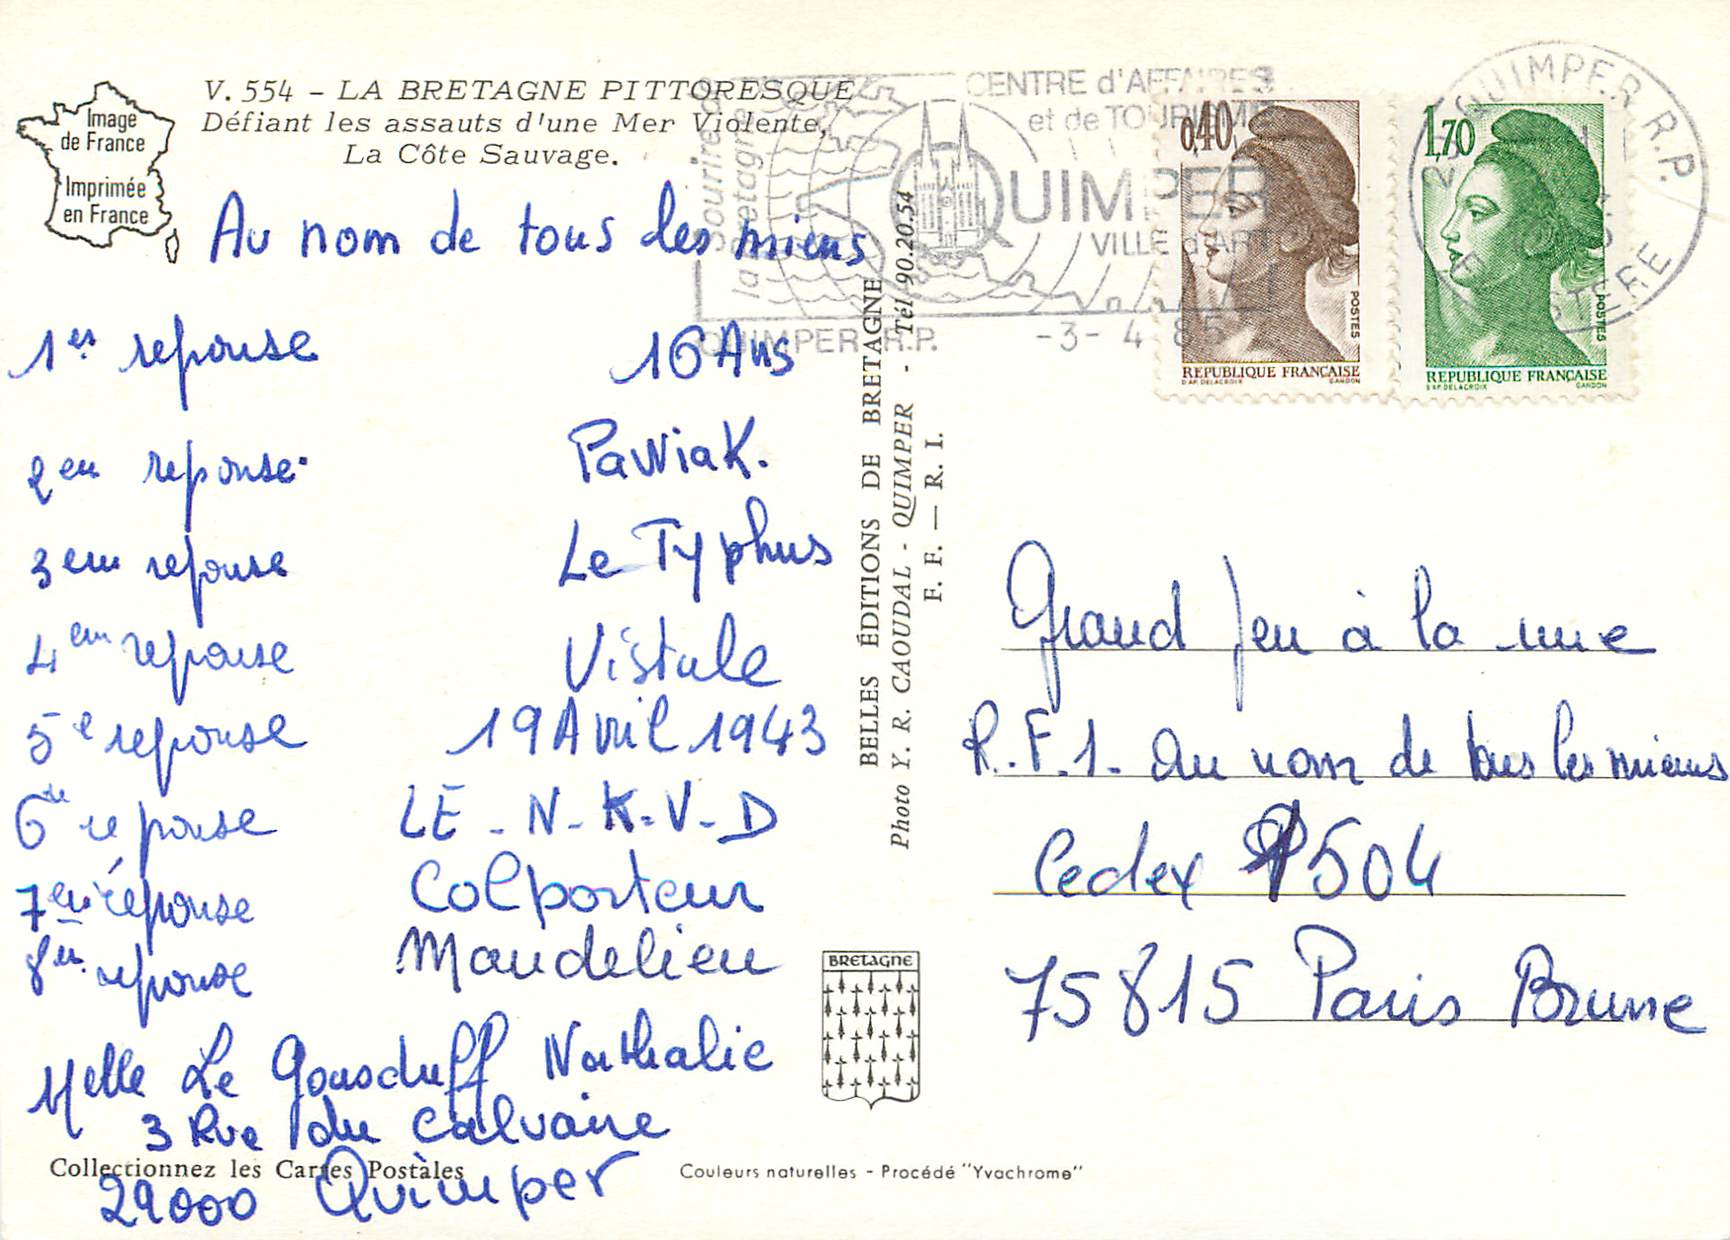 Image
de France
Imprimée
en France
V. 554 - LA BRETAGNE PITTORESQUE
Défiant les assauts d'une Mer Violente,
La Côte Sauvage.
Au nom de tous les miens
1er reponse 16 Ans
2em reponse. PaWiaK.
3em reponse Le Typhus
4em reponse Vistule
5e reponse 19 Avril 1943
6e reponse LE - N - K.V. D
7em réponse Colporteur
8em reponse Mandelieu
Melle Le Gousduff Nathalie
3 Rue du Calvaire
29000 Quimper
Collectionnez les Cartes Postàles
Couleurs naturelles - Procédé "Yvachrome"
BELLES ÉDITIONS DE BRETAGNE
Photo Y. R. CAOUDAL - QUIMPER - Tél 90.20.54
F. F. — R. I.
BRETAGNE
Sourire à
la Bretagne
CENTRE d'AFFAIRES
et de TOURISME
QUIMPER
VILLE d'ART
QUIMPER R.P.
-3- 4 85
0,40
POSTES
REPUBLIQUE FRANÇAISE
D'AP. DELACROIX GANDON
1,70
POSTES
REPUBLIQUE FRANÇAISE
D'AP. DELACROIX GANDON
QUIMPER R.P.
Grand Jeu à la une
R.F.1. au nom de tous les miens
Cedex 9504
75815 Paris Brune